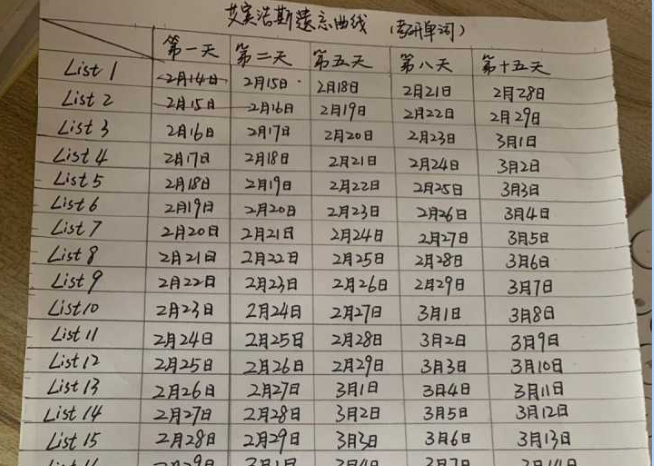 艾宾浩斯遗忘曲线 (考研单词)
第一天 第二天 第五天 第八天 第十五天
List 1 2月14日 2月15日 2月18日 2月21日 2月28日
List 2 2月15日 2月16日 2月19日 2月22日 2月29日
List 3 2月16日 2月17日 2月20日 2月23日 3月1日
List 4 2月17日 2月18日 2月21日 2月24日 3月2日
List 5 2月18日 2月19日 2月22日 2月25日 3月3日
List 6 2月19日 2月20日 2月23日 2月26日 3月4日
List 7 2月20日 2月21日 2月24日 2月27日 3月5日
List 8 2月21日 2月22日 2月25日 2月28日 3月6日
List 9 2月22日 2月23日 2月26日 2月29日 3月7日
List 10 2月23日 2月24日 2月27日 3月1日 3月8日
List 11 2月24日 2月25日 2月28日 3月2日 3月9日
List 12 2月25日 2月26日 2月29日 3月3日 3月10日
List 13 2月26日 2月27日 3月1日 3月4日 3月11日
List 14 2月27日 2月28日 3月2日 3月5日 3月12日
List 15 2月28日 2月29日 3月3日 3月6日 3月13日
2月29日 3月1日 3月4日 3月7日 3月14日